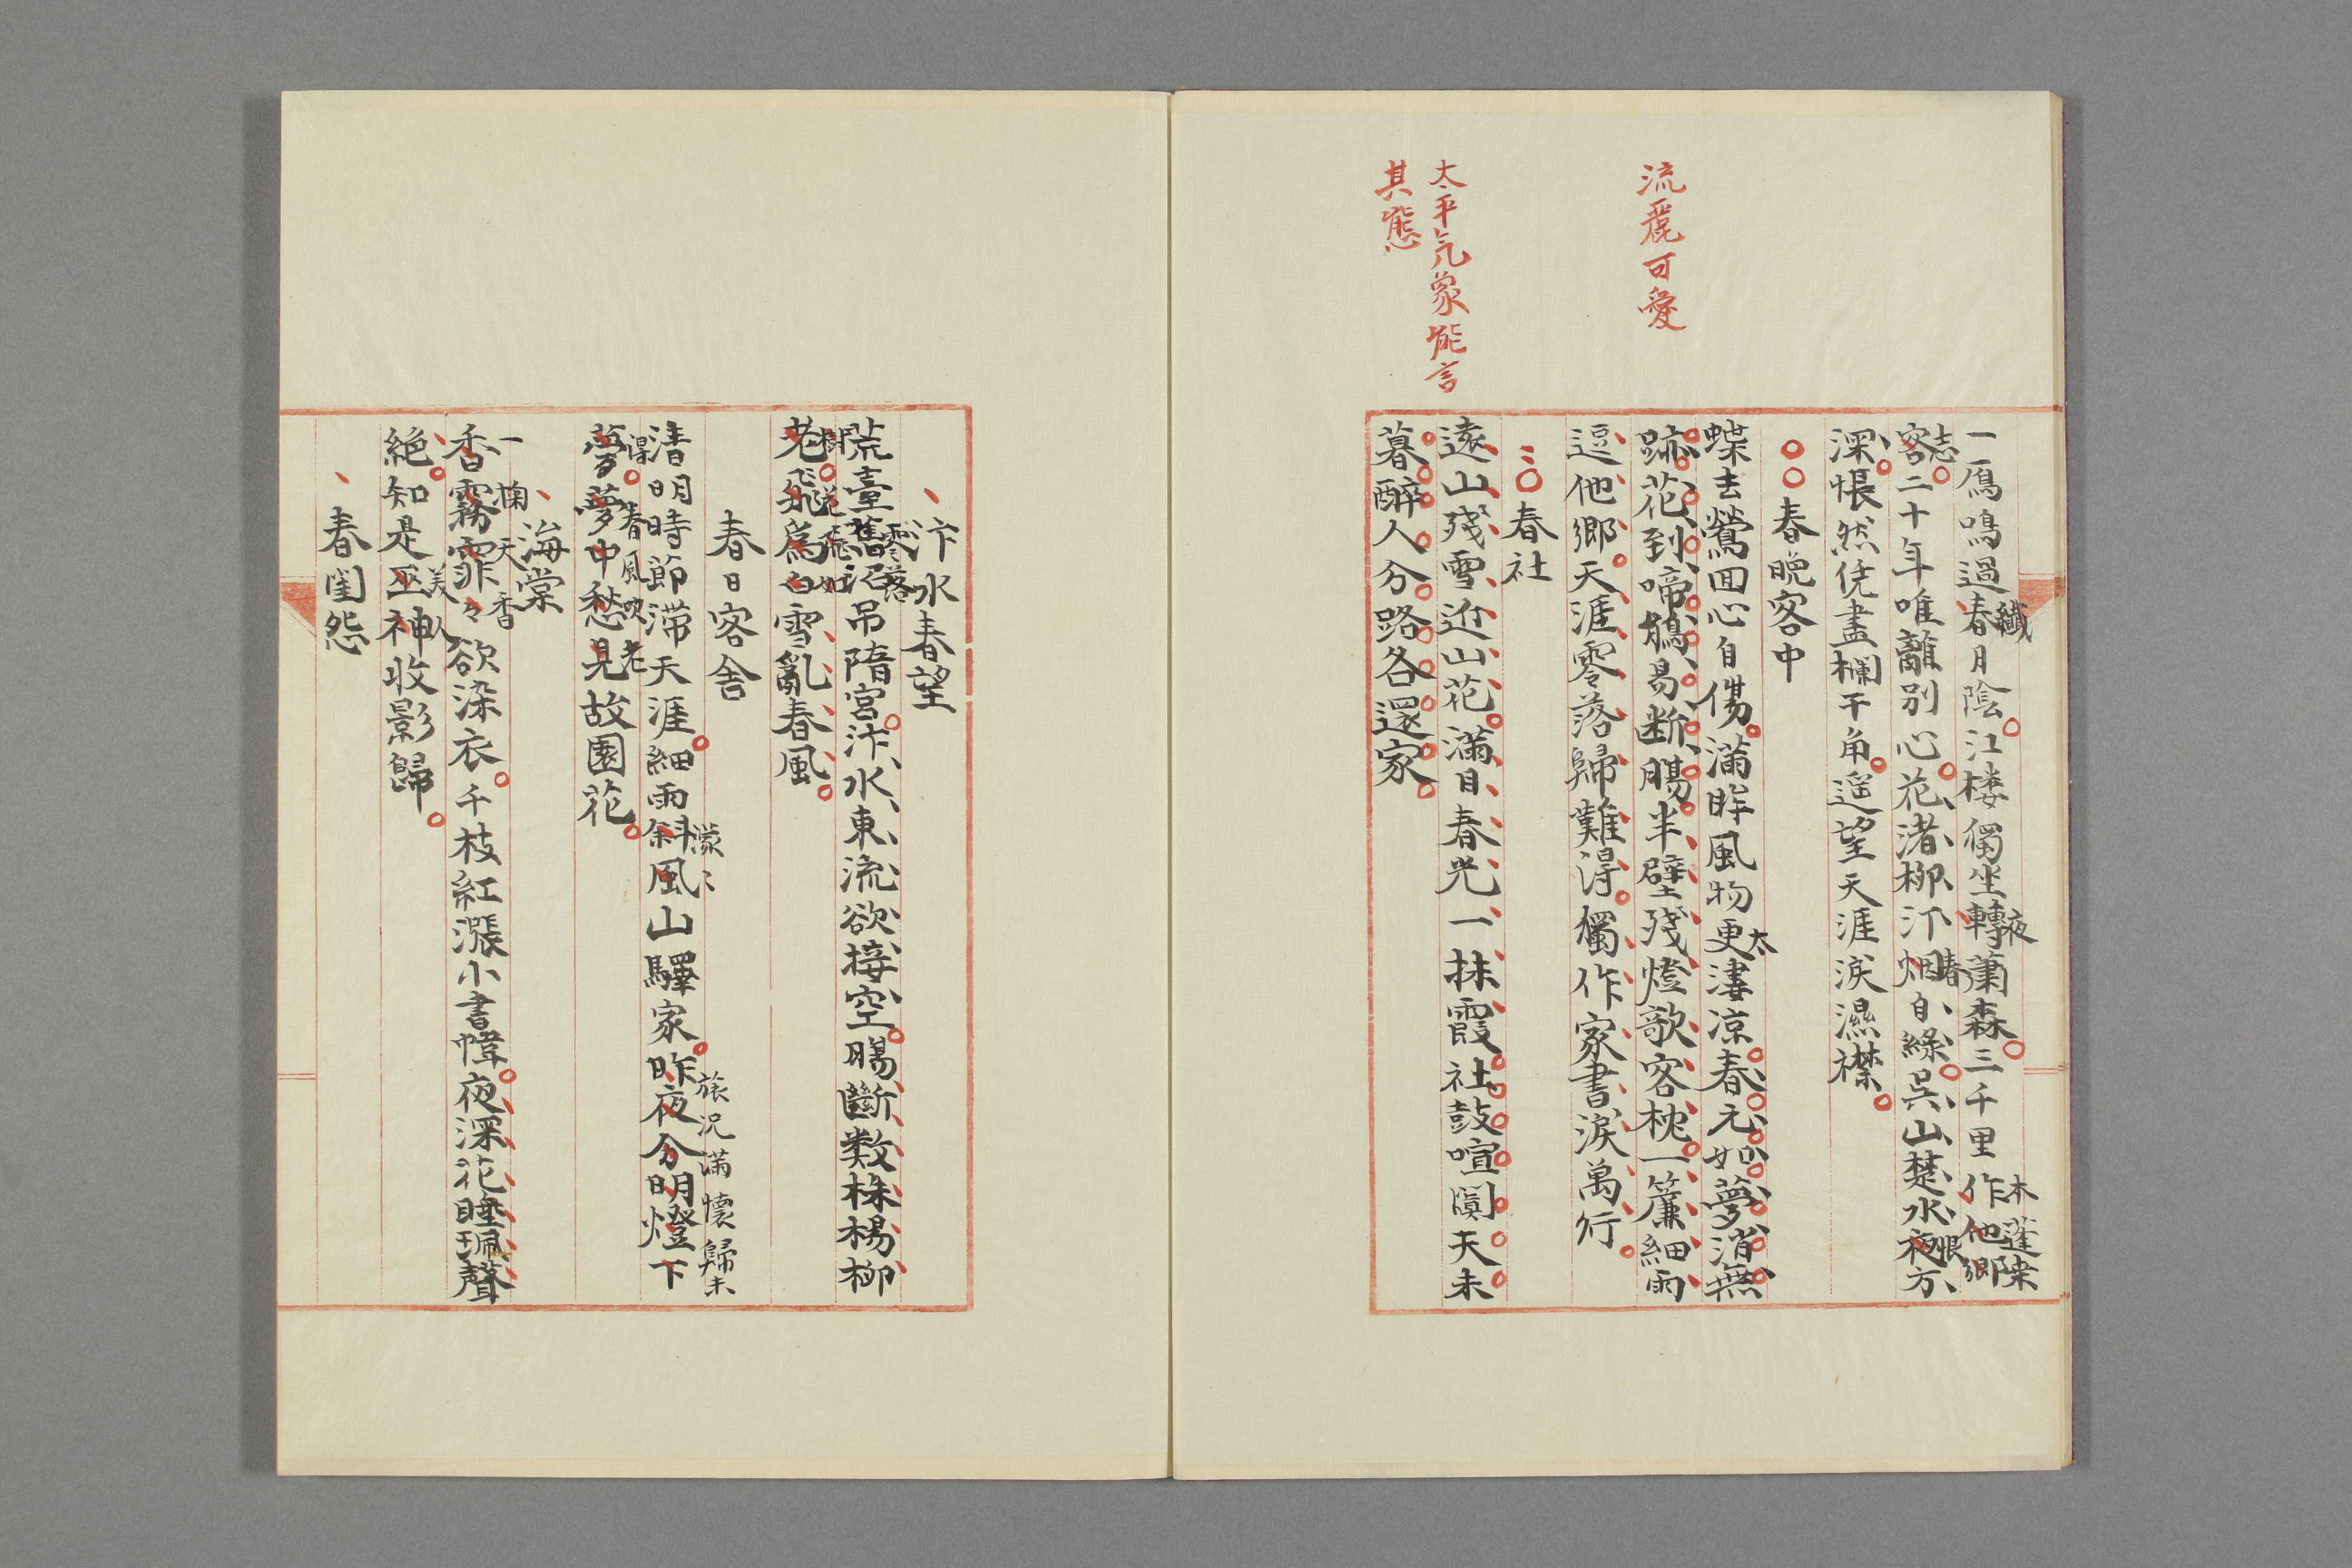 流麗可愛
太平気象能言
其態
一鴈鳴過春月陰江楼獨坐轉蕭森三千里作他郷
纖
夜
木蓬隂
客二十年唯離別心花渚柳汀烟自綠呉山楚水夜方
志
春
恨
深悵然凭盡欄干角遥望天涯淚濕襟
春晩客中
蝶去鶯回心自傷滿眸風物更凄凉春元如夢消無
太
跡花到啼鵑易断腸半壁残燈歌客枕一簾細雨
逗他郷天涯零落歸難得獨作家書淚萬行
春社
遠山残雪近山花滿目春光一抹霞社鼓喧闐天未
暮醉人分路各還家
汴水春望
荒臺舊沼吊隋宮汴水東流欲接空腸斷数株楊柳
零落
老飛為白雪亂春風
樹
飛花如
春日客舎
清明時節滞天涯細雨斜風山驛家昨夜分明燈下
濛〻
旅況滿懷歸未
夢夢中愁見故園花
得
春風吹老
海棠
香霧霏々欲染衣千枝紅漲小書幃夜深花睡珮聲
一掬天香
絶知是巫神收影歸
美人
春閨怨